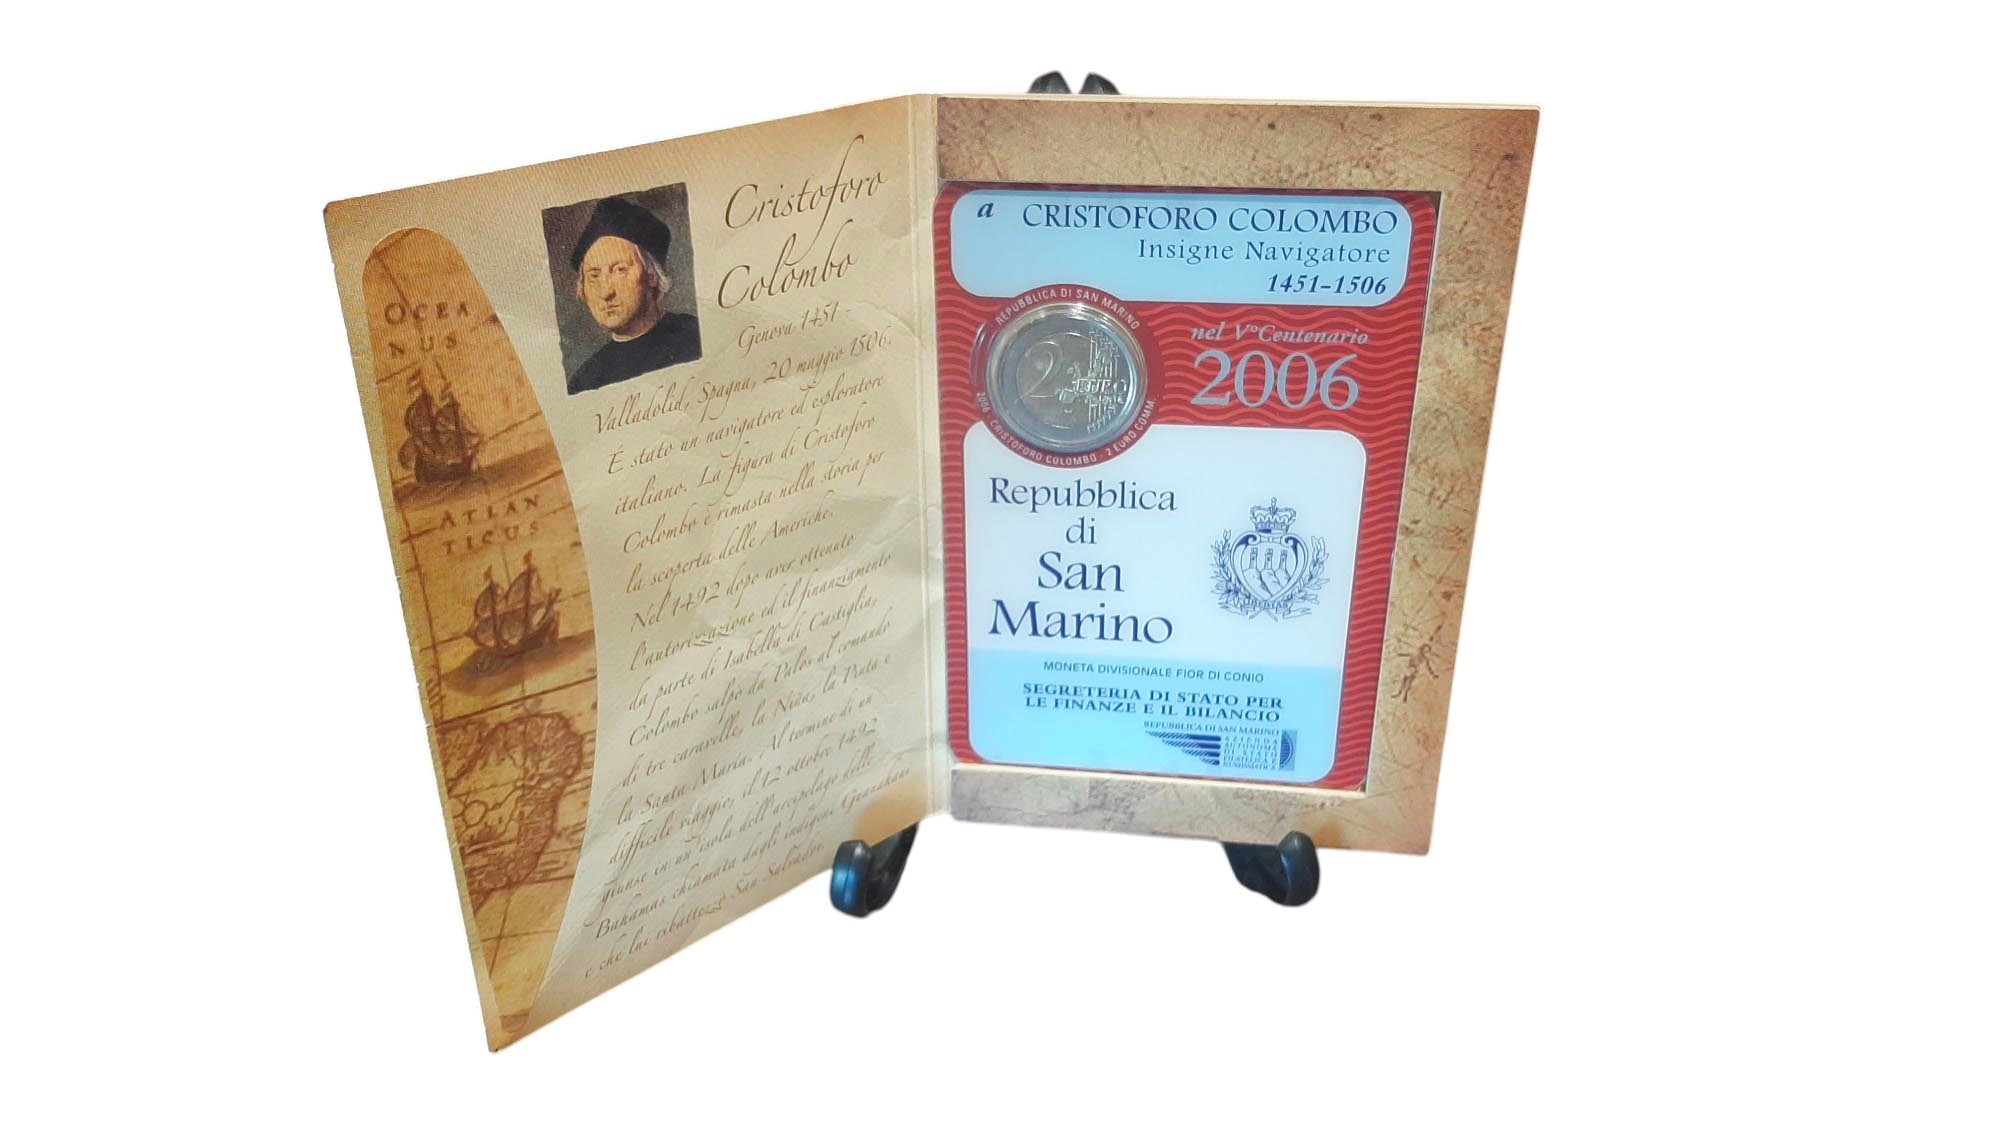 OCEA
NUS
ATLAN
TICUS
Cristoforo
Colombo
Genova 1451 -
Valladolid, Spagna, 20 maggio 1506.
È stato un navigatore ed esploratore
italiano. La figura di Cristoforo
Colombo è rimasta nella storia per
la scoperta delle Americhe.
Nel 1492 dopo aver ottenuto
l'autorizzazione ed il finanziamento
da parte di Isabella di Castiglia,
Colombo salpò da Palos al comando
di tre caravelle, la Nina, la Pinta e
la Santa Maria. Al termine di un
difficile viaggio, il 12 ottobre 1492
giunse in un'isola dell'arcipelago delle
Bahamas chiamata dagli indigeni Guanahani
e che lui ribattezzò San Salvador.
a CRISTOFORO COLOMBO
Insigne Navigatore
1451-1506
REPUBBLICA DI SAN MARINO
2006 - CRISTOFORO COLOMBO - 2 EURO COMM.
2 EURO
nel V° Centenario
2006
Repubblica
di
San
Marino
LIBERTAS
MONETA DIVISIONALE FIOR DI CONIO
SEGRETERIA DI STATO PER
LE FINANZE E IL BILANCIO
REPUBBLICA DI SAN MARINO
AZIENDA
AUTONOMA
DI STATO
FILATELICA E
NUMISMATICA